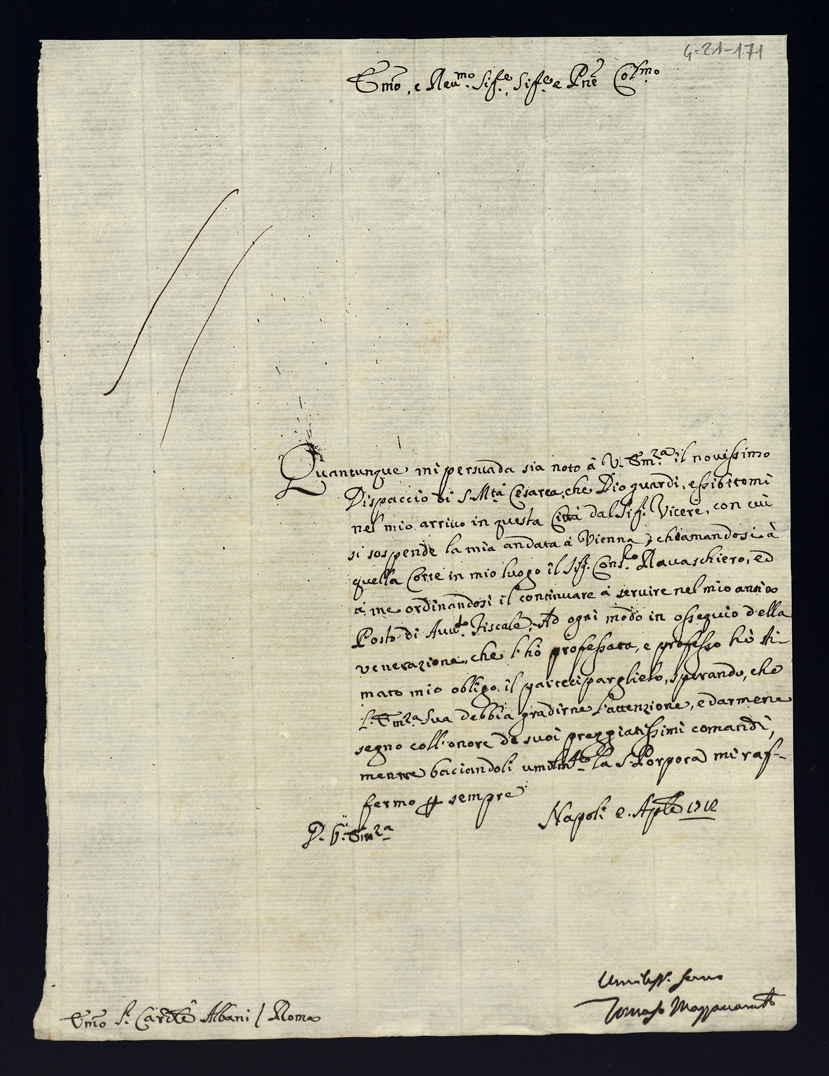 4-21-171
Emo, e Reumo Sig.e, Sig.e e Pne Colmo
Quantunque mi persuada sia noto à V. Emza il nouissimo
Dispaccio di S. Mtà Cesarea, che Dio guardi, essibitomi
nel mio arriuo in questa Città dal Sig.r Vicerè, con cui
si sospende la mia andata à Vienna, chiamandosi à
quella Corte in mio luogo il Sig.r Cons.ro Rauaschiero, ed
à me ordinandosi il continuare à seruire nel mio antico
Posto di Auu.to Fiscale; Ad ogni modo in ossequio della
venerazione, che l'hò professata, e professo hò sti-
mato mio obligo il parteciparglielo, sperando, che
l'Emza Sua debbia gradirne l'attenzione, e darmene
segno coll'onore de suoi preggiatissimi comandi,
mentre baciandoli umilmte la S. Porpora mi raf-
fermo sempre
D. V. Emza
Napoli 2. Aple 1712
Umiliss.o Seruo
Tomaso
Emo S.r Cardle Albani / Roma